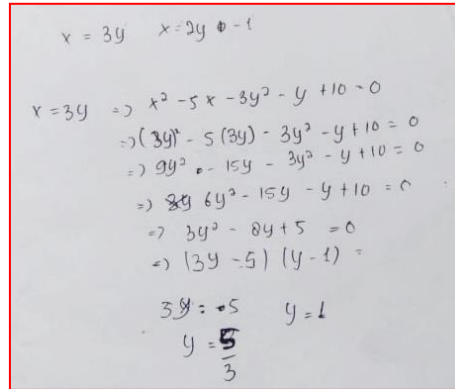 x = 3y x = 2y - 1
x = 3y => x² - 5x - 3y² - y + 10 = 0
=> (3y)² - 5(3y) - 3y² - y + 10 = 0
=> 9y² - 15y - 3y² - y + 10 = 0
=> 6y² - 15y - y + 10 = 0
=> 3y² - 8y + 5 = 0
=> (3y - 5) (y - 1) =
3y = 5 y = 1
y = 5/3